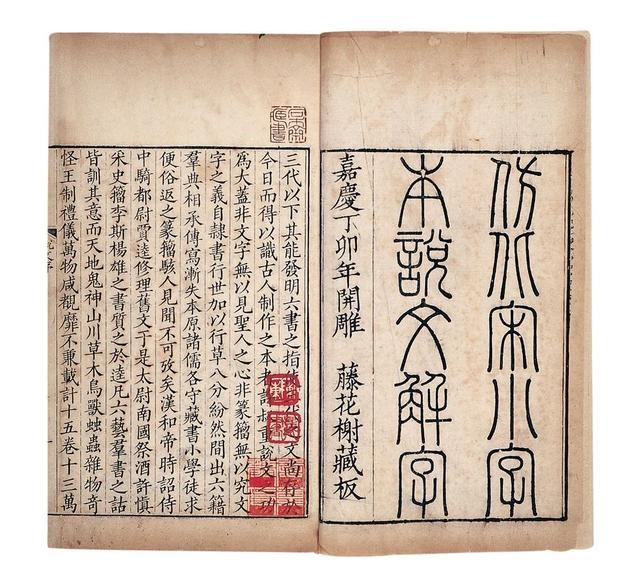 仿北宋小字
本說文解字
嘉慶丁卯年開雕 藤花榭藏板
三代以下其能發明六書之指文尚存於
今日而得以識古人制作之本者許叔重說文之功
爲大蓋非文字無以見聖人之心非篆籀無以究文
字之義自隸書行世加以行草八分紛然間出六籍
羣典相承傳寫漸失本原諸儒各守藏書小學徒求
便俗返之篆籀駭人見聞不可攷矣漢和帝時詔侍
中騎都尉賈逵修理舊文于是太尉南國祭酒許慎
采史籀李斯楊雄之書質之於逵凡六藝羣書之詁
皆訓其意而天地鬼神山川草木鳥獸䖵蟲雜物奇
怪王制禮儀萬物咸覩靡不兼載計十五卷十三萬